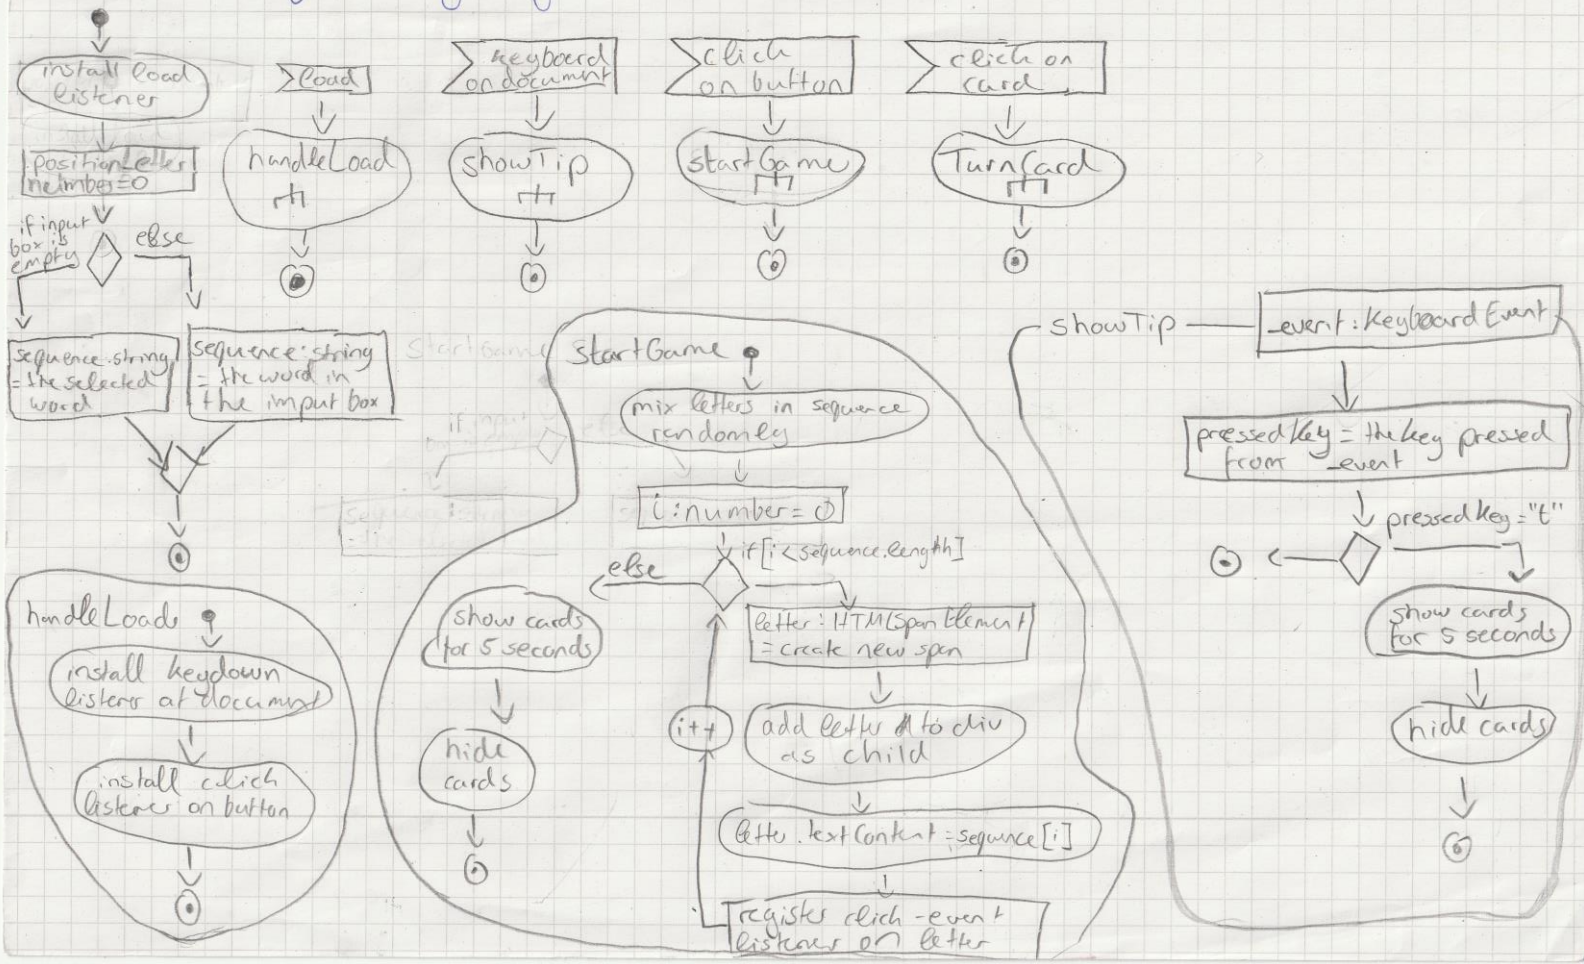 install load
listener
positionLetter
number=0
if input
box is
empty
else
sequence:string
= the selected
word
sequence:string
= the word in
the imput box
load
handleLoad
keyboard
on document
showTip
click
on button
startGame
click on
card
TurnCard
handleLoad
install keydown
listener at document
install click
listener on button
startGame
mix letters in sequence
randomly
i:number = 0
if [i<sequence.length]
else
show cards
for 5 seconds
hide
cards
letter: HTMLSpanElement
= create new span
add letter to div
as child
letter.textContent = sequence[i]
register click-event
listener on letter
i++
showTip
_event: KeyboardEvent
pressedKey = the key pressed
from _event
pressedKey = "t"
show cards
for 5 seconds
hide cards